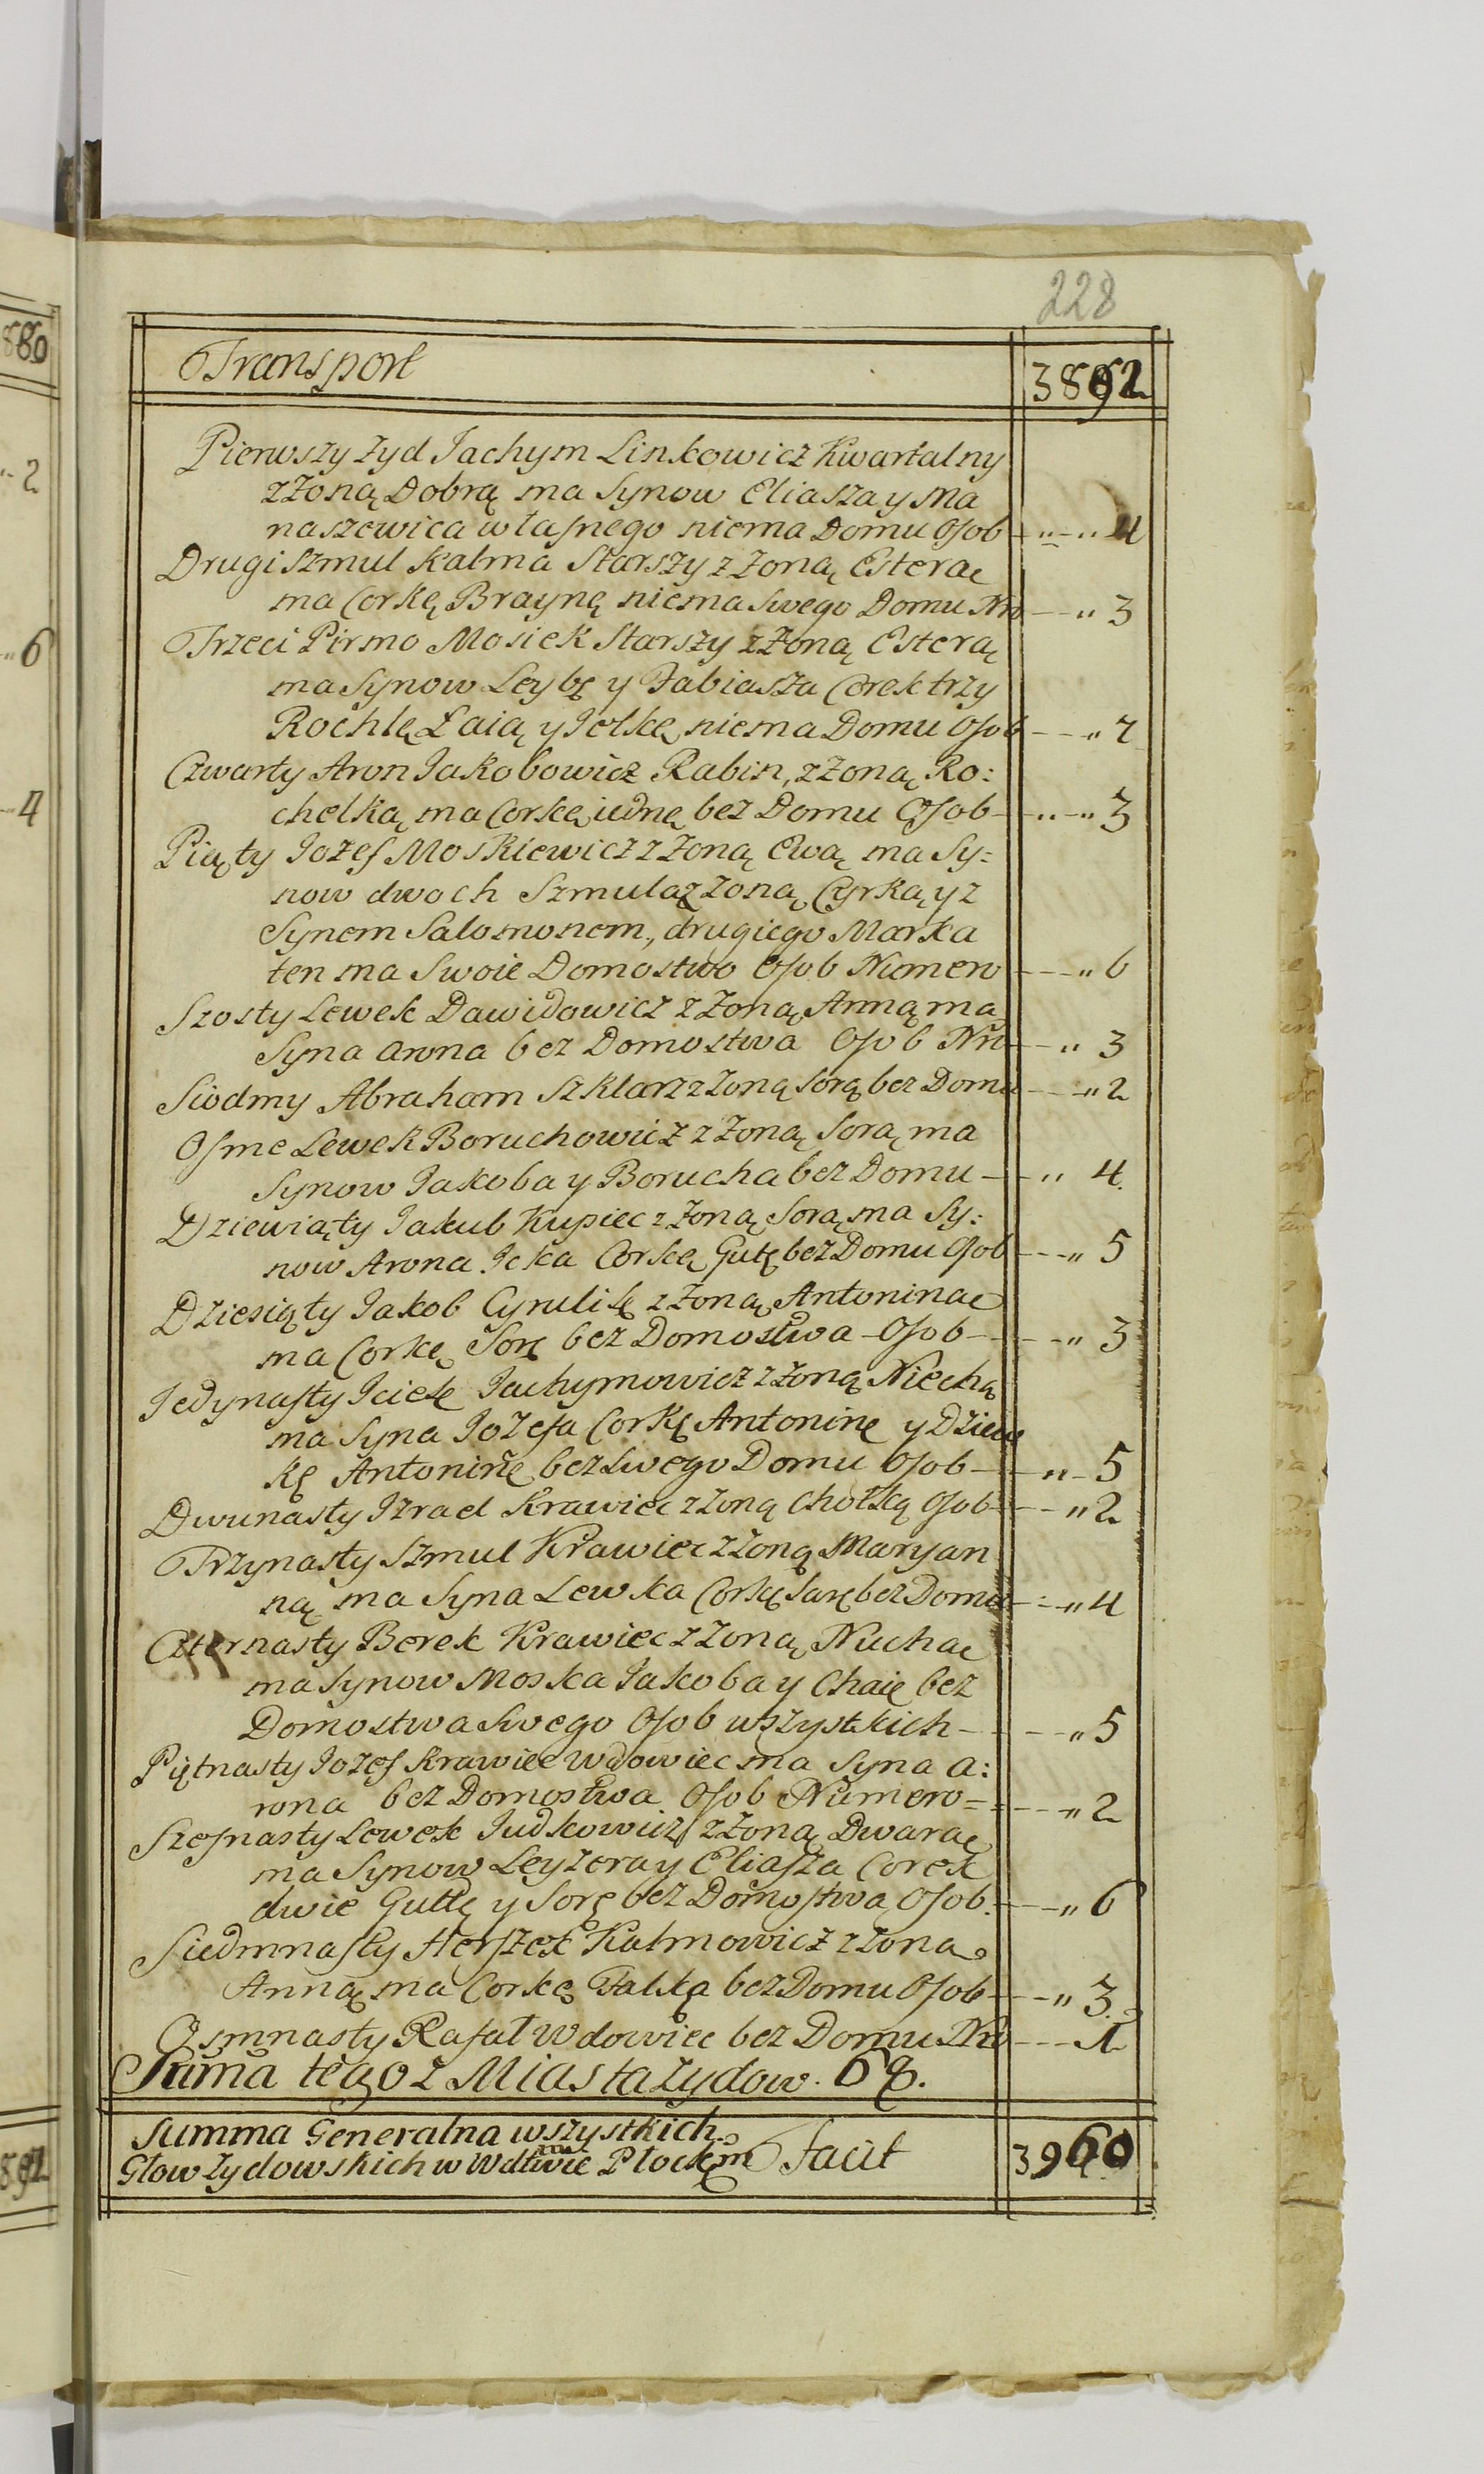 880
2
6
4
892
228
Transport 3892
Pierwszy Zyd Jachym Linkowicz Kwartalny
z Żoną Dobrą ma Synow Eliasza y Ma
naszewica własnego niema Domu Osob 4
Drugi Szmul Kalma Starszy z Żoną Esterą
ma Corkę Braynę niema Swego Domu Nro 3
Trzeci Pirmo Mosiek Starszy z Żoną Esterą
ma Synow Leybę y Tabiasza Corek trzy
Rochlę Łaią y Jelkę niema Domu Osob 7
Czwarty Aron Jakobowicz Rabin, z Żoną Ro:
chelką ma Corkę iednę bez Domu Osob 3
Piąty Jozef Moskiewicz z Żoną Ewą ma Sy=
now dwoch Szmula z Żoną Cyrką y z
Synem Salomonem, drugiego Marka
ten ma Swoie Domostwo Osob Numero 6
Szosty Lewek Dawidowicz z Żoną Anną ma
Syna Arona bez Domostwa Osob Nro 3
Siodmy Abraham Szklarz z Żoną Sorą bez Domu 2
Osme Lewek Boruchowicz z Żoną Sorą ma
Synow Jakoba y Borucha bez Domu 4.
Dziewiąty Jakub Kupiec z Żoną Sorą ma Sy:
now Arona Icka Corkę Gutę bez Domu Osob 5
Dziesiąty Jakob Cyrulik z Żoną Antoniną
ma Corkę Sorę bez Domostwa Osob 3
Jedynasty Iciek Jachymowicz z Żoną Niechą
ma Syna Jozefa Corkę Antoninę y Dziew
kę Antoninę bez Swego Domu Osob 5
Dwunasty Izrael Krawiec z Żoną Chołką Osob 2
Trzynasty Szmul Krawiec z Żoną Maryan
ną ma Syna Lewka Corkę Sarę bez Domu 4
Czternasty Berek Krawiec z Żoną Nuchą
ma Synow Moska Jakoba y Chaię bez
Domostwa Swego Osob wszystkich 5
Piętnasty Jozef Krawiec Wdowiec ma Syna A:
rona bez Domostwa Osob Numero 2
Szesnasty Lewek Judkowicz z Żoną Dwarą
ma Synow Leyzera y Eliasza Corek
dwie Gutłę y Sorę bez Domostwa Osob. 6
Siedmnasty Herszek Kalmowicz z Żoną
Anną ma Corkę Falkę bez Domu Osob 3.
Osmnasty Rafał Wdowiec bez Domu Nro 1
Suma tegoż Miasta Zydow. 68.
Summa Generalna wszystkich
Głow Zydowskich w Wdztwie Płockim Facit 3960